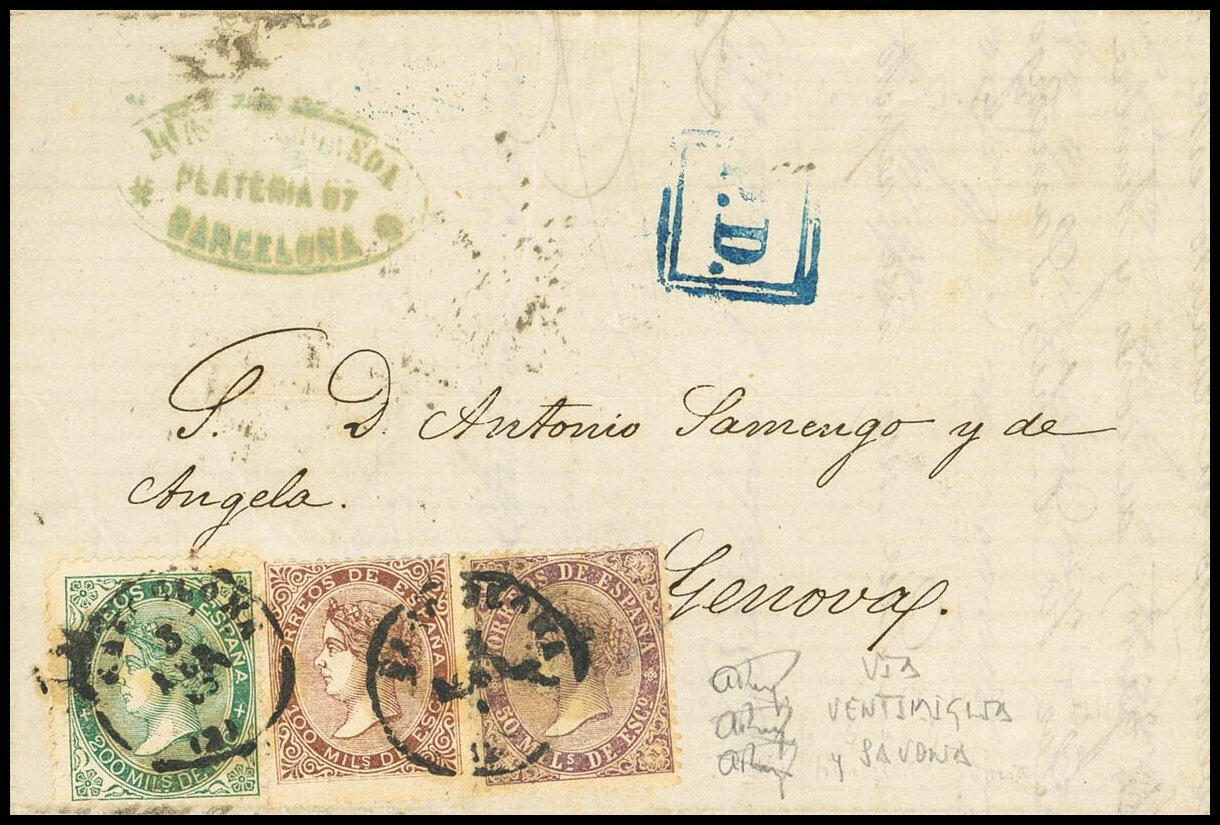 PLATERIA 67
BARCELONA
.D.
S. D. Antonio Samengo y de
Angela.
Genova.
CORREOS DE ESPAÑA
200 MILS. DE
BARCELONA
3
(2)
CORREOS DE ESPAÑA
10 MILS. DE ESCO
BARCELONA
CORREOS DE ESPAÑA
50 MILS. DE ESCO
VIA
VENTIMIGLIA
y SAVONA